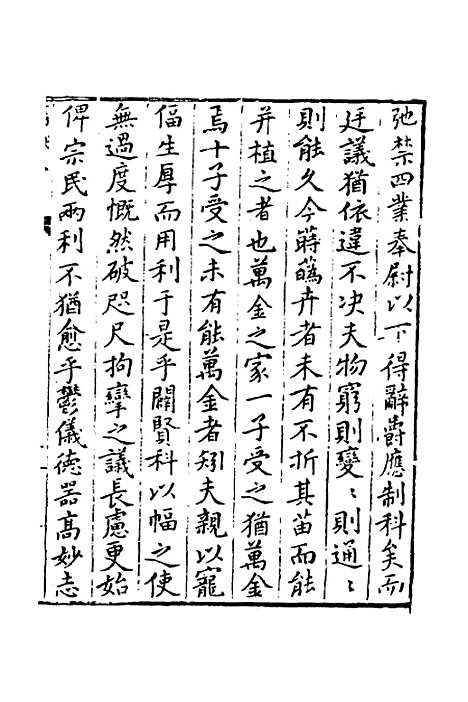 弛禁四業奉尉以下得辭爵應制科矣而
廷議猶依違不决夫物窮則變〻則通〻
則能久今蒔蓺卉者未有不折其苗而能
并植之者也萬金之家一子受之猶萬金
焉十子受之未有能萬金者矧夫親以寵
偪生厚而用利于是乎闢賢科以幅之使
無過度慨然破咫尺拘攣之議長慮更始
俾宗民兩利不猶愈乎鬱儀德器高妙志